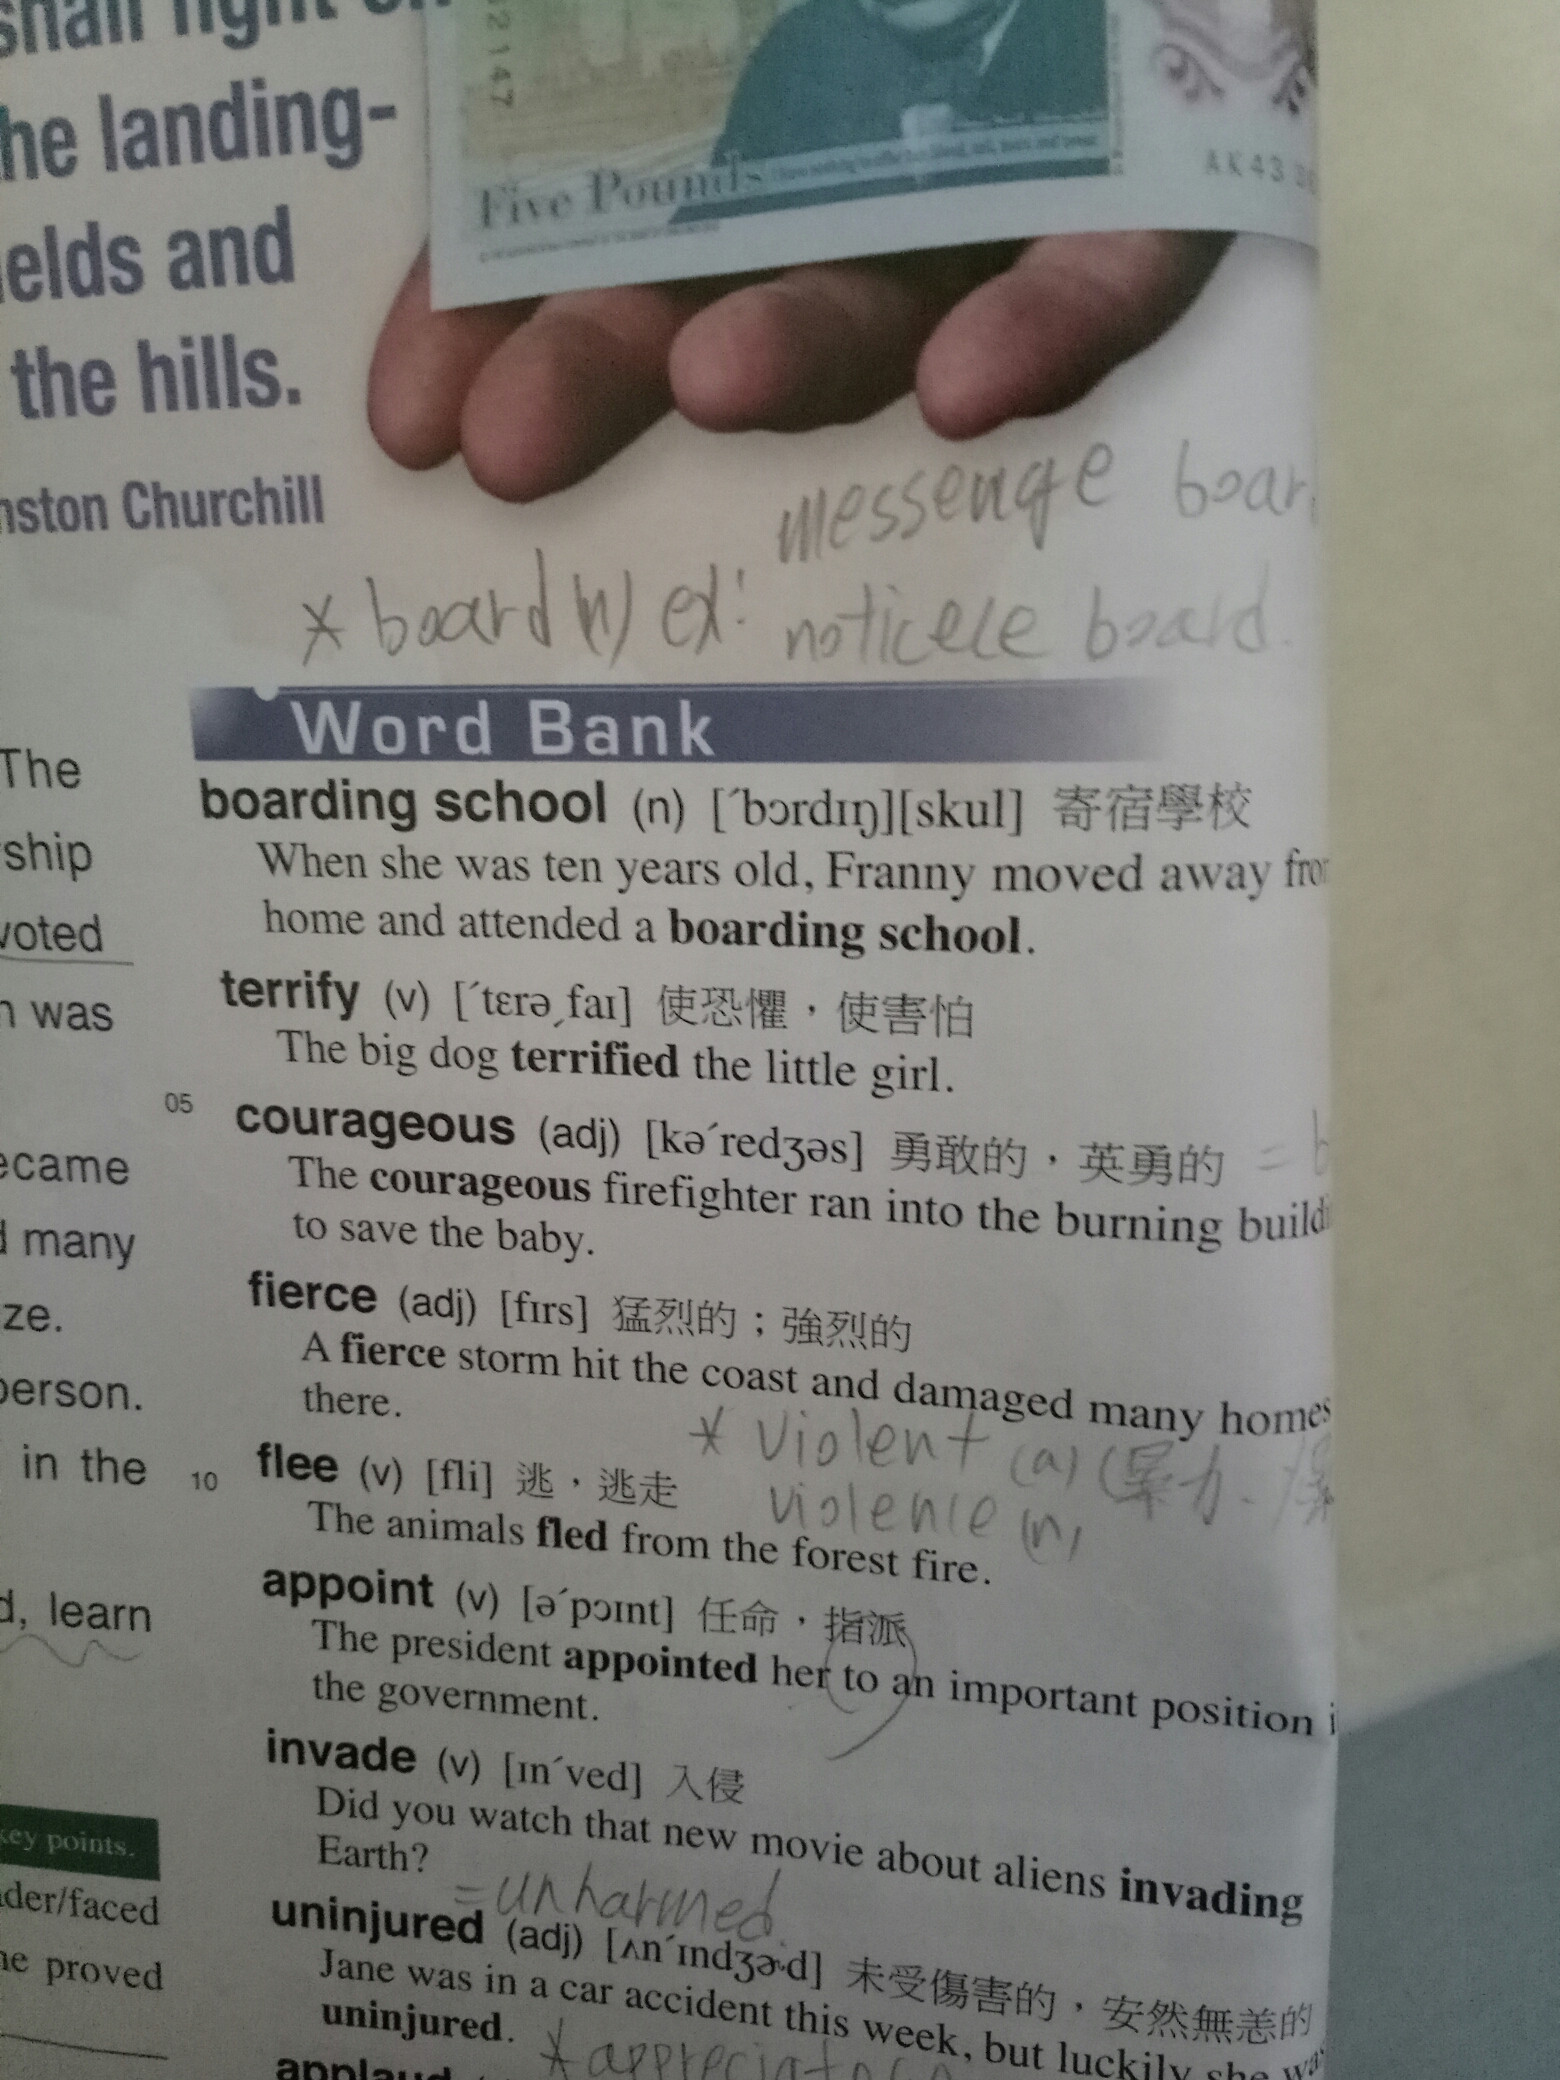 shall fight on
the landing-
fields and
the hills.
Winston Churchill
2147
Five Pounds
AK43
messenge board
* board (n) ex: noticece board.
Word Bank
The
ship
voted
was
boarding school (n) [ˊbɔrdɪŋ][skul] 寄宿學校
When she was ten years old, Franny moved away from
home and attended a boarding school.
terrify (v) [ˊtɛrəˏfaɪ] 使恐懼，使害怕
The big dog terrified the little girl.
05
courageous (adj) [kəˊredʒəs] 勇敢的，英勇的 = b
The courageous firefighter ran into the burning build
to save the baby.
fierce (adj) [fɪrs] 猛烈的；強烈的
A fierce storm hit the coast and damaged many homes
there.
* violent (a) (暴力
violence (n)
10
flee (v) [fli] 逃，逃走
The animals fled from the forest fire.
appoint (v) [əˊpɔɪnt] 任命，指派
The president appointed her to an important position i
the government.
invade (v) [ɪnˊved] 入侵
Did you watch that new movie about aliens invading
Earth?
= unharmed
uninjured (adj) [ʌnˊɪndʒɚd] 未受傷害的，安然無恙的
Jane was in a car accident this week, but luckily she was
uninjured.
applaud
became
many
ze.
person.
in the
learn
key points.
der/faced
he proved